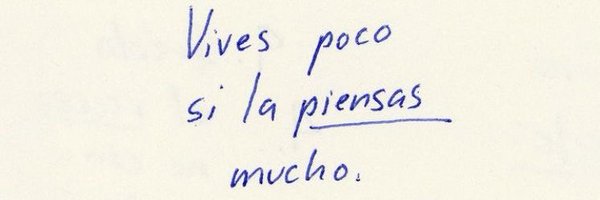 Vives poco
si la piensas
mucho.